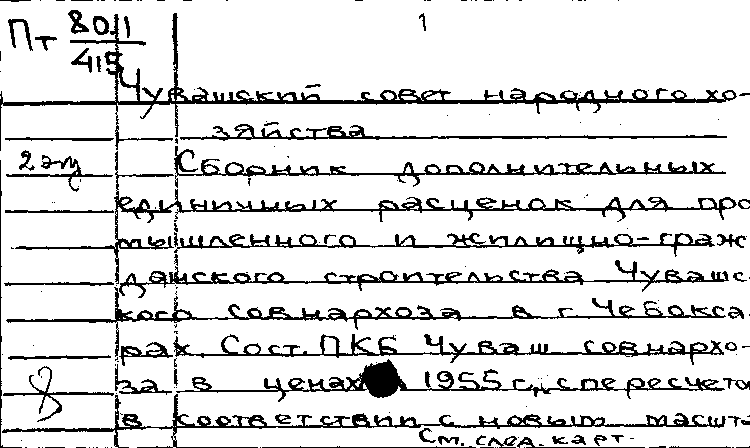 1
Пт 80.1/415
Чувашский совет народного хо-
зяйства.
2 экз
Сборник дополнительных
единичных расценок для про
мышленного и жилищно-граж
данского строительства Чувашс-
кого совнархоза в г. Чебокса
рах. Сост. ПКБ Чуваш совнархо-
за в ценах 1955 г., с пересчето
8
в соответствии с новым масшт
См. след. карт.